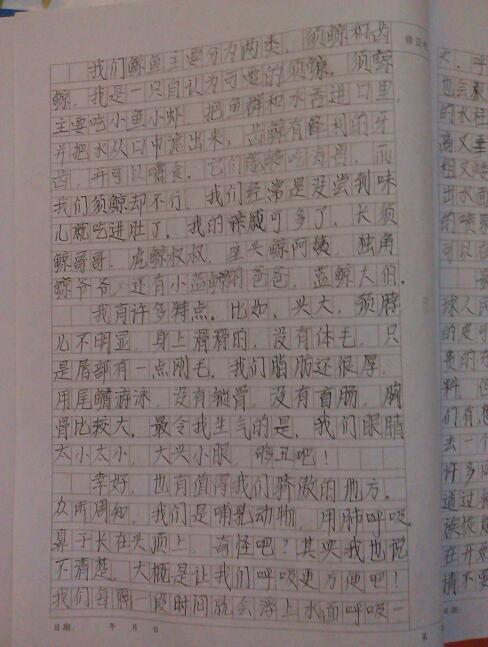 我们鲸鱼主要分为两类，须鲸和齿
鲸。我是一只自认为可爱的须鲸。须鲸
主要吃小鱼小虾，把鱼群和水吞进口里，
并把水从口中滤出来。齿鲸有锋利的牙
齿，并可以嚼食。它们能够吃海兽。而
我们须鲸却不行。我们经常是没尝到味
儿就吃进肚了。我的亲戚可多了，长须
鲸哥哥，虎鲸叔叔，座头鲸阿姨，独角
鲸爷爷，还有小蓝鲸的爸爸，蓝鲸大伯。
我有许多特点。比如，头大，颈脖
儿不明显，身上滑滑的，没有体毛，只
是唇部有一点刚毛。我们脂肪还很厚，
用尾鳍游泳，没有锁骨，没有盲肠，胸
骨比较大。最令我生气的是，我们眼睛
太小太小，大头小眼，够丑吧！
幸好，也有值得我们骄傲的地方。
众所周知，我们是哺乳动物，用肺呼吸。
鼻子长在头顶上，奇怪吧？其实我也说
不清楚，大概是让我们呼吸更方便吧！
我们每隔一段时间就会浮上水面呼吸一
日期： 年 月 日
第
修正
大，呼
也会
的水柱
高又
粗又
出水面
的喷
可以
球人
的是可
贵的
料，但
们有
去一个
许多
通过
在开
请不要
日期：